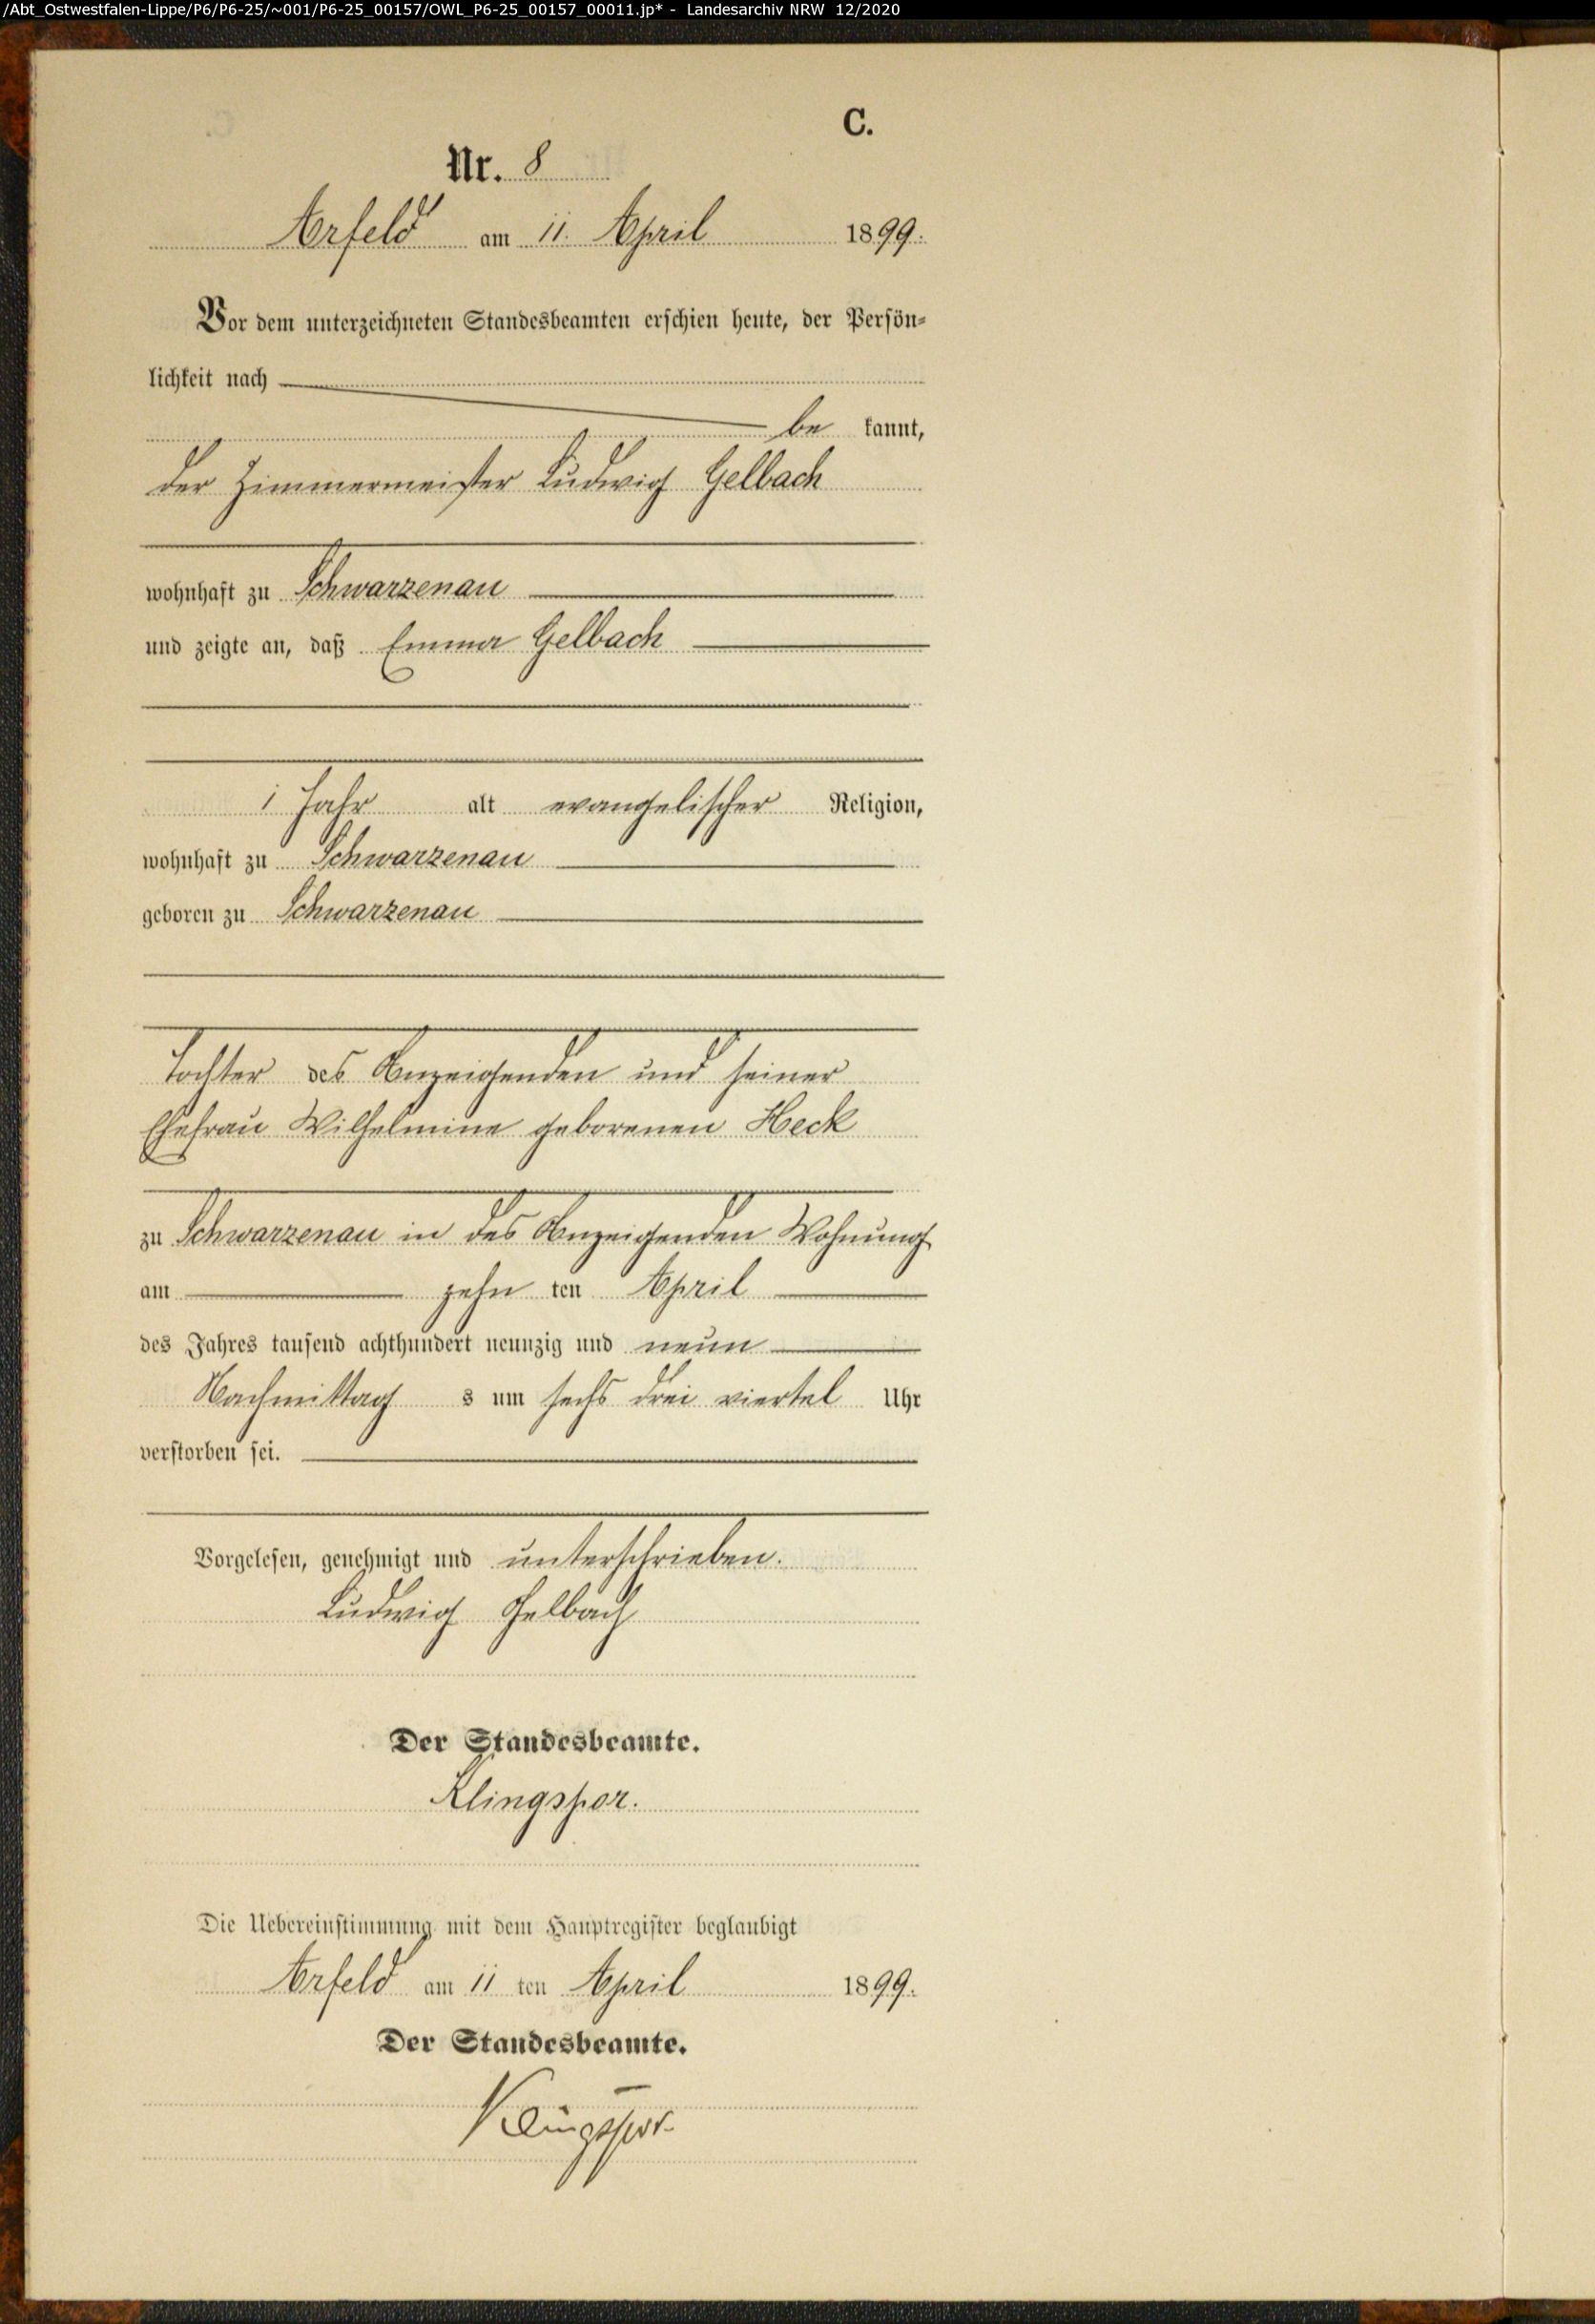 /Abt_Ostwestfalen-Lippe/P6/P6-25/~001/P6-25_00157/OWL_P6-25_00157_00011.jp* - Landesarchiv NRW 12/2020
C.
Nr. 8
Arfeld am 11. April 1899.
Vor dem unterzeichneten Standesbeamten erschien heute, der Persön-
lichkeit nach
be kannt,
der Zimmermeister Ludwig Gelbach
wohnhaft zu Schwarzenau
und zeigte an, daß Emma Gelbach
1 Jahr alt evangelischer Religion,
wohnhaft zu Schwarzenau
geboren zu Schwarzenau
Tochter des Anzeigenden und seiner
Ehefrau Wilhelmine geborenen Heck
zu Schwarzenau in des Anzeigenden Wohnung
am zehn ten April
des Jahres tausend achthundert neunzig und neun
Nachmittag s um sechs drei viertel Uhr
verstorben sei.
Vorgelesen, genehmigt und unterschrieben.
Ludwig Gelbach
Der Standesbeamte.
Klingspor.
Die Uebereinstimmung mit dem Hauptregister beglaubigt
Arfeld am 11 ten April 1899.
Der Standesbeamte.
Klingspor.